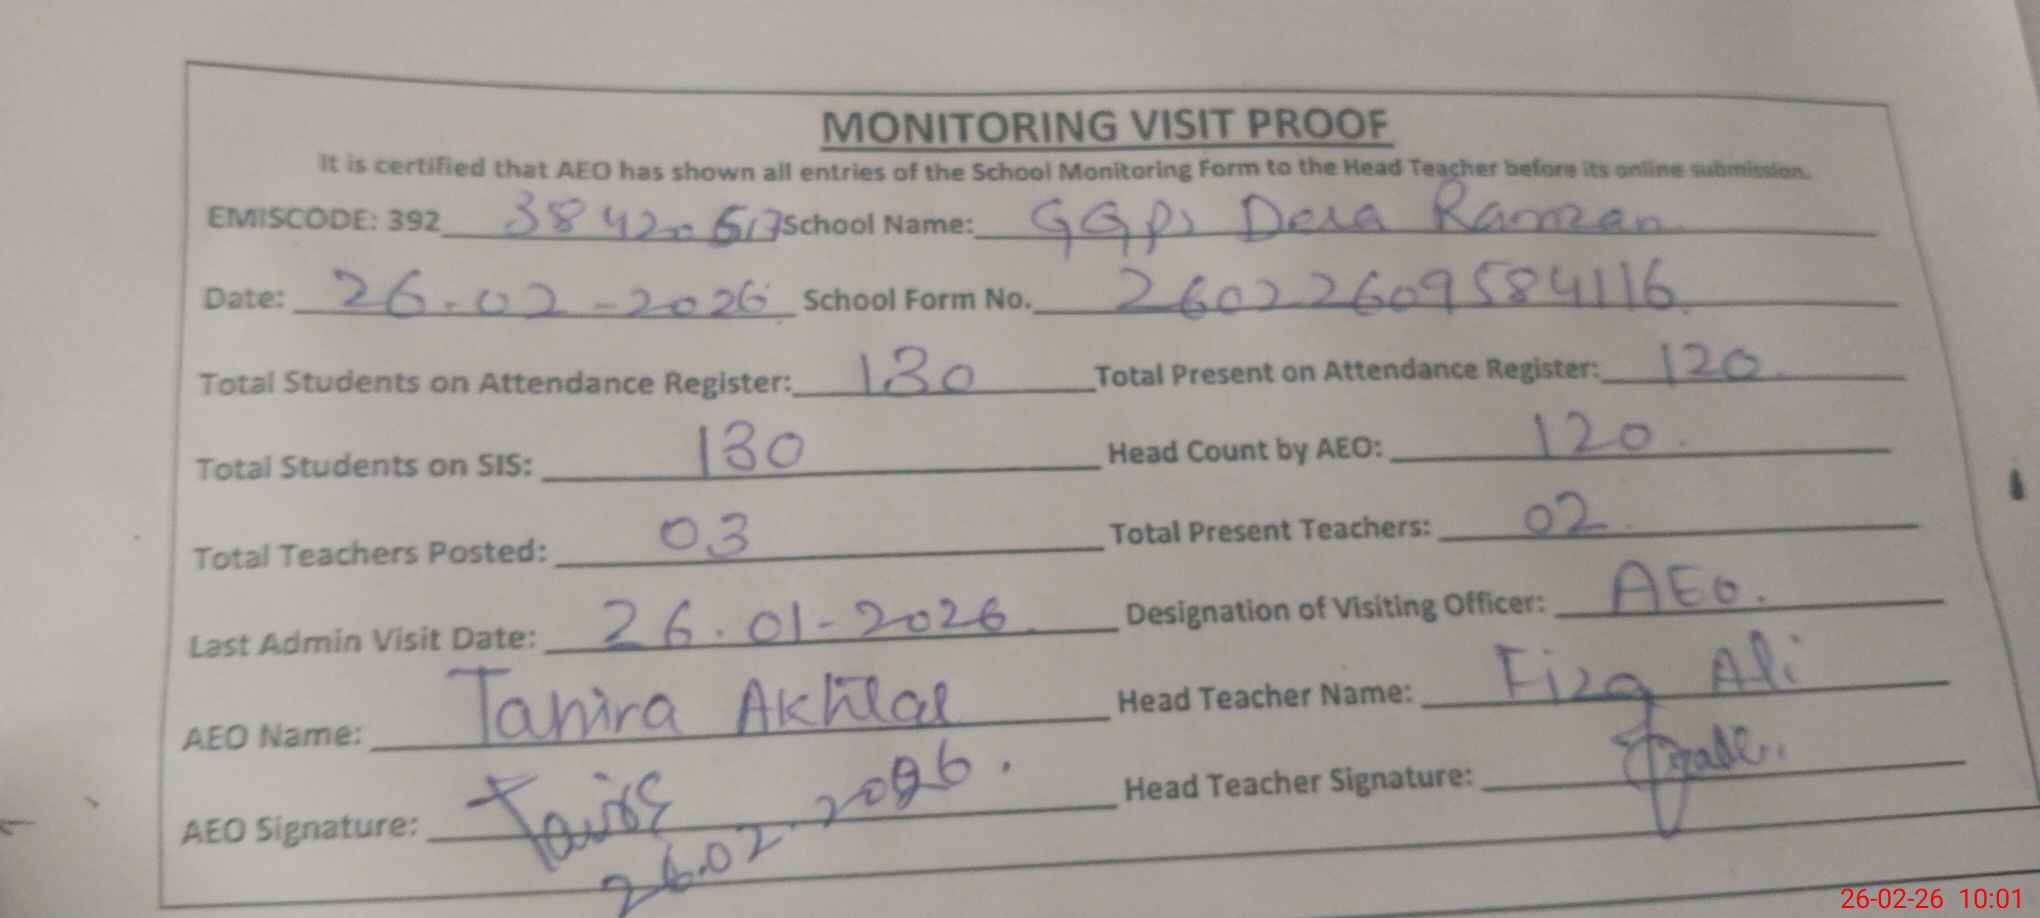 MONITORING VISIT PROOF
It is certified that AEO has shown all entries of the School Monitoring Form to the Head Teacher before its online submission.
EMISCODE: 392 38420617 School Name: GGPS Dera Ramzan
Date: 26-02-2026 School Form No. 26022609584116
Total Students on Attendance Register: 130 Total Present on Attendance Register: 120
Total Students on SIS: 130 Head Count by AEO: 120
Total Teachers Posted: 03 Total Present Teachers: 02
Last Admin Visit Date: 26.01-2026 Designation of Visiting Officer: AEO.
AEO Name: Tahira Head Teacher Name: Fiza Ali
AEO Signature: Head Teacher Signature:
26.02.2026.
26-02-26 10:01